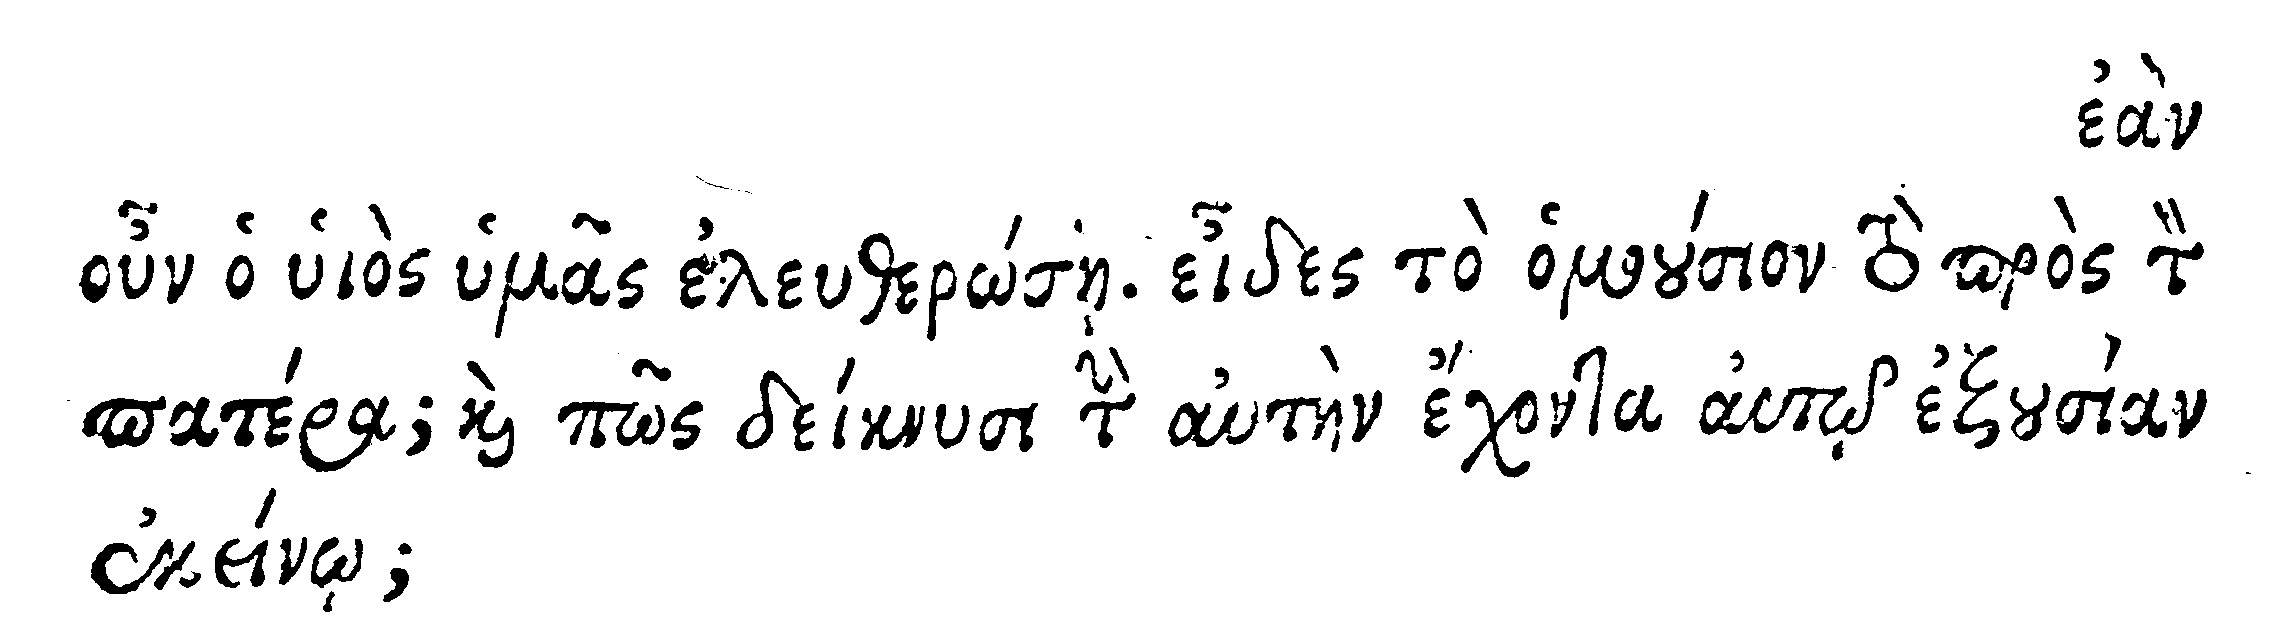 ἐὰν
οὖν ὁ υἱὸς ὑμᾶς ἐλευθερώσῃ. εἶδες τὸ ὁμοούσιον τὸ πρὸς τὸν
πατέρα; καὶ πῶς δείκνυσι τὴν ἀυτὴν ἔχοντα ἀυτῷ ἐξουσίαν
ἐκείνῳ;